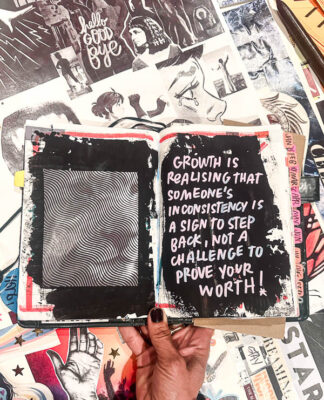 hello
GOOD
BYE
GROWTH IS
REALISING THAT
SOMEONE'S
INCONSISTENCY IS
A SIGN TO STEP
BACK, NOT A
CHALLENGE TO
PROVE YOUR
WORTH!
START